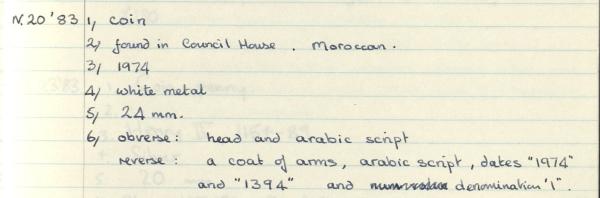 N.20 '83 1, coin
2, found in Council House. Moroccan.
3, 1974
4, white metal
5, 24 mm.
6, obverse: head and arabic script
reverse: a coat of arms, arabic script, dates "1974"
and "1394" and denomination '1".